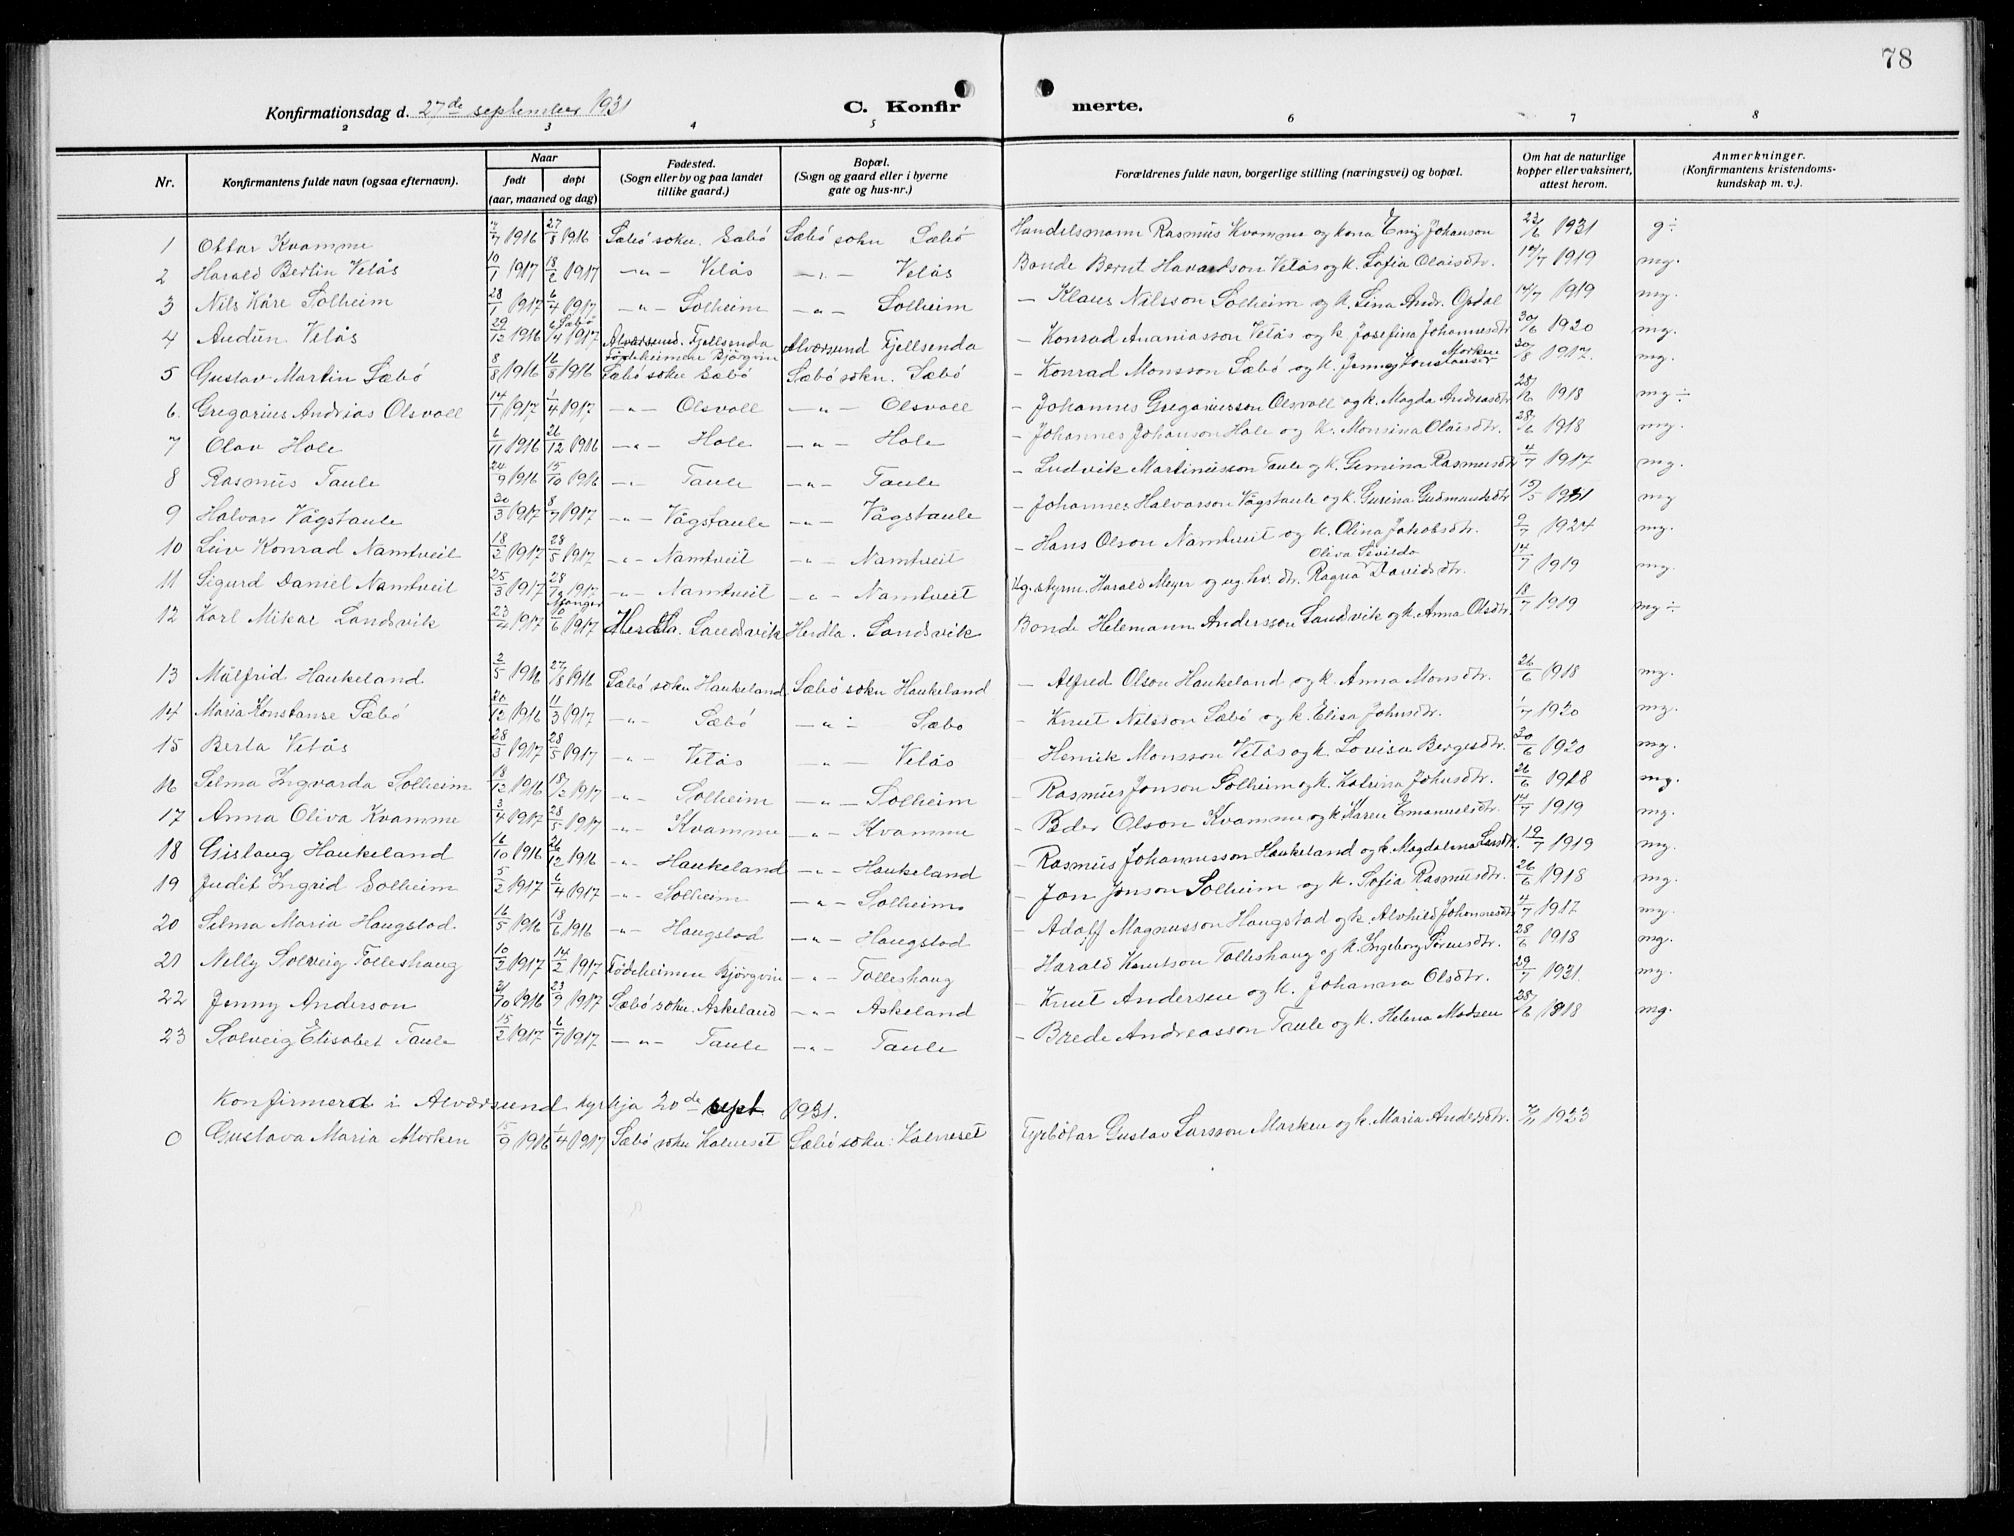 78
Konfirmationsdag d. 27de september 1931 C. Konfir merte.
2 3 4 5 6 7 8
Nr. Konfirmantens fulde navn (ogsaa efternavn). Naar født døpt (aar, maaned og dag) Fødested. (Sogn eller by og paa landet tillike gaard.) Bopæl. (Sogn og gaard eller i byerne gate og hus-nr.) Forældrenes fulde navn, borgerlige stilling (næringsvei) og bopæl. Om hat de naturlige kopper eller vaksinert, attest herom. Anmerkninger. (Konfirmantens kristendoms-kundskap m. v.).
1 Ottar Kvamme 1916 27/8 1916 Sæbø sokn. Sæbø Sæbø sokn Sæbø Handelsmann Rasmus Kvamme og kona Enny Johanson 23/6 1931 g÷
2 Harald Bertin Vetås 10/1 1917 18/2 1917 —"— Vetås —"— Vetås Bonde Bernt Havardson Vetås og k. Sofia Olaisdtr. 14/7 1919 mg.
3 Nils Kåre Solheim 28/1 1917 6/4 1917 —"— Solheim —"— Solheim — Klaus Nilsson Solheim og k. Lina Andr. Opdal 14/7 1919 mg.
4 Audun Vetås 29/12 1916 6/4 Sæbø 1917 Alversund. Fjellsenda Fødeheimen Bjørgvin Alversund Fjellsenda — Konrad Ananiasson Vetås og k Josefina Johannesdtr 30/6 1920 mg.
5 Gustav Martin Sæbø 8/8 1916 16/8 1916 Sæbø sokn Sæbø Sæbø sokn. Sæbø — Konrad Monsson Sæbø og k. Jenny Konstanse Morken 30/8 1917. mg.
6. Gregorius Andrias Olsvoll 14/1 1917 1/4 1917 —"— Olsvoll —"— Olsvoll — Johannes Gregoriusson Olsvoll og k. Magda Andreasdtr 28/6 1918 mg÷
7 Olav Hole 6/11 1916 26/12 1916 —"— Hole —"— Hole — Johannes Johanson Hole og k. Monsina Olaisdtr. 28/6 1918 mg.
8 Rasmus Taule 24/9 1916 15/10 1916 —"— Taule —"— Taule — Ludvik Martinusson Taule og k. Gemina Rasmusdtr 4/7 1917 mg.
9 Halvar Vågstaule 30/3 1917 8/7 1917 —"— Vågstaule —"— Vågstaule — Johannes Halvarson Vågstaule og k. Gurina Gudmundsdtr 1931 mg
10 Leiv Konrad Namtveit 18/2 1917 28/5 1917 —"— Namtveit —"— Namtveit — Hans Olson Namtveit og k. Olina Jakobsdtr. 9/7 1924 mg.
11 Sigurd Daniel Namtveit 25/3 1917 28 1917 —"— Namtveit —"— Namtveit Harald Meyer og Ragna Oliva Davidsdtr. 14/7 1919 mg.
12 Karl Mikae Landsvik 1917 Manger 10/6 1917 Herdla. Landsvik Herdla. Landsvik Bonde Helemann Andersson Landsvik og k. Anna Olsdtr 18/7 1919 mg÷
13 Målfrid Haukeland 2/5 1916 27/8 1916 Sæbø sokn Haukeland Sæbø sokn Haukeland — Alfred Olson Haukeland og k. Anna Monsdtr. 26/6 1918 mg.
14 Maria Konstanse Sæbø 20/12 1916 11/3 1917 —"— Sæbø —"— Sæbø — Knut Nilsson Sæbø og k. Elisa Johnsdtr. 1/7 1920 mg.
15 Berta Vetås 28/3 1917 28/5 1917 —"— Vetås —"— Vetås — Henrik Monsson Vetås og k. Lovisa Bergesdtr. 30/6 1920 mg.
16 Selma Ingvarda Solheim 18/12 1916 18/2 1917 —"— Solheim —"— Solheim — Rasmus Jonson Solheim og k. Katrina Johnsdtr. 26/6 1918 mg.
17 Anna Oliva Kvamme 3/4 1917 28/5 1917 —"— Kvamme —"— Kvamme — Peder Olson Kvamme og k Karen Emanuelsdtr. 14/7 1919 mg.
18 Gislaug Haukeland 16/10 1916 26/12 1916 —"— Haukeland —"— Haukeland — Rasmus Johannesson Haukeland og k. Magdalena Larsdtr. 19/7 1919 mg.
19 Judit Ingrid Solheim 5/2 1917 6/4 1917 —"— Solheim —"— Solheim — Jon Jonson Solheim og k. Sofia Rasmusdtr. 26/6 1918 mg.
20 Selma Maria Haugstad. 16/5 1916 18/6 1916 —"— Haugstad —"— Haugstad — Adolf Magnusson Haugstad og k. Alvhild Johannesdtr 4/7 1917 mg.
21 Nelly Solveig Tolleshaug 10/2 1917 14/2 1917 Fødeheimen Bjørgvin —"— Tolleshaug — Harald Knutson Tolleshaug og k. Ingeborg Sørensdtr. 28/6 1918 mg.
22 Jenny Anderson 21/10 1916 23/9 1917 Sæbø sokn. Askeland —"— Askeland — Knut Andersen og k. Johanna Olsdtr. 29/7 1931. mg.
23 Solveig Elisabet Taule 15/2 1917 6/7 1917 —"— Taule —"— Taule — Brede Andreasson Taule og k. Helena Madsen 28/6 1918 mg.
Konfirmerd i Alversund kyrkja 20de sept 1931.
0 Gustava Maria Morken 15/9 1916 1/4 1917 Sæbø sokn Kalneset Sæbø sokn: Kalneset Fyrbøtar Gustav Larsson Marken og k. Maria Andersdtr. 1923